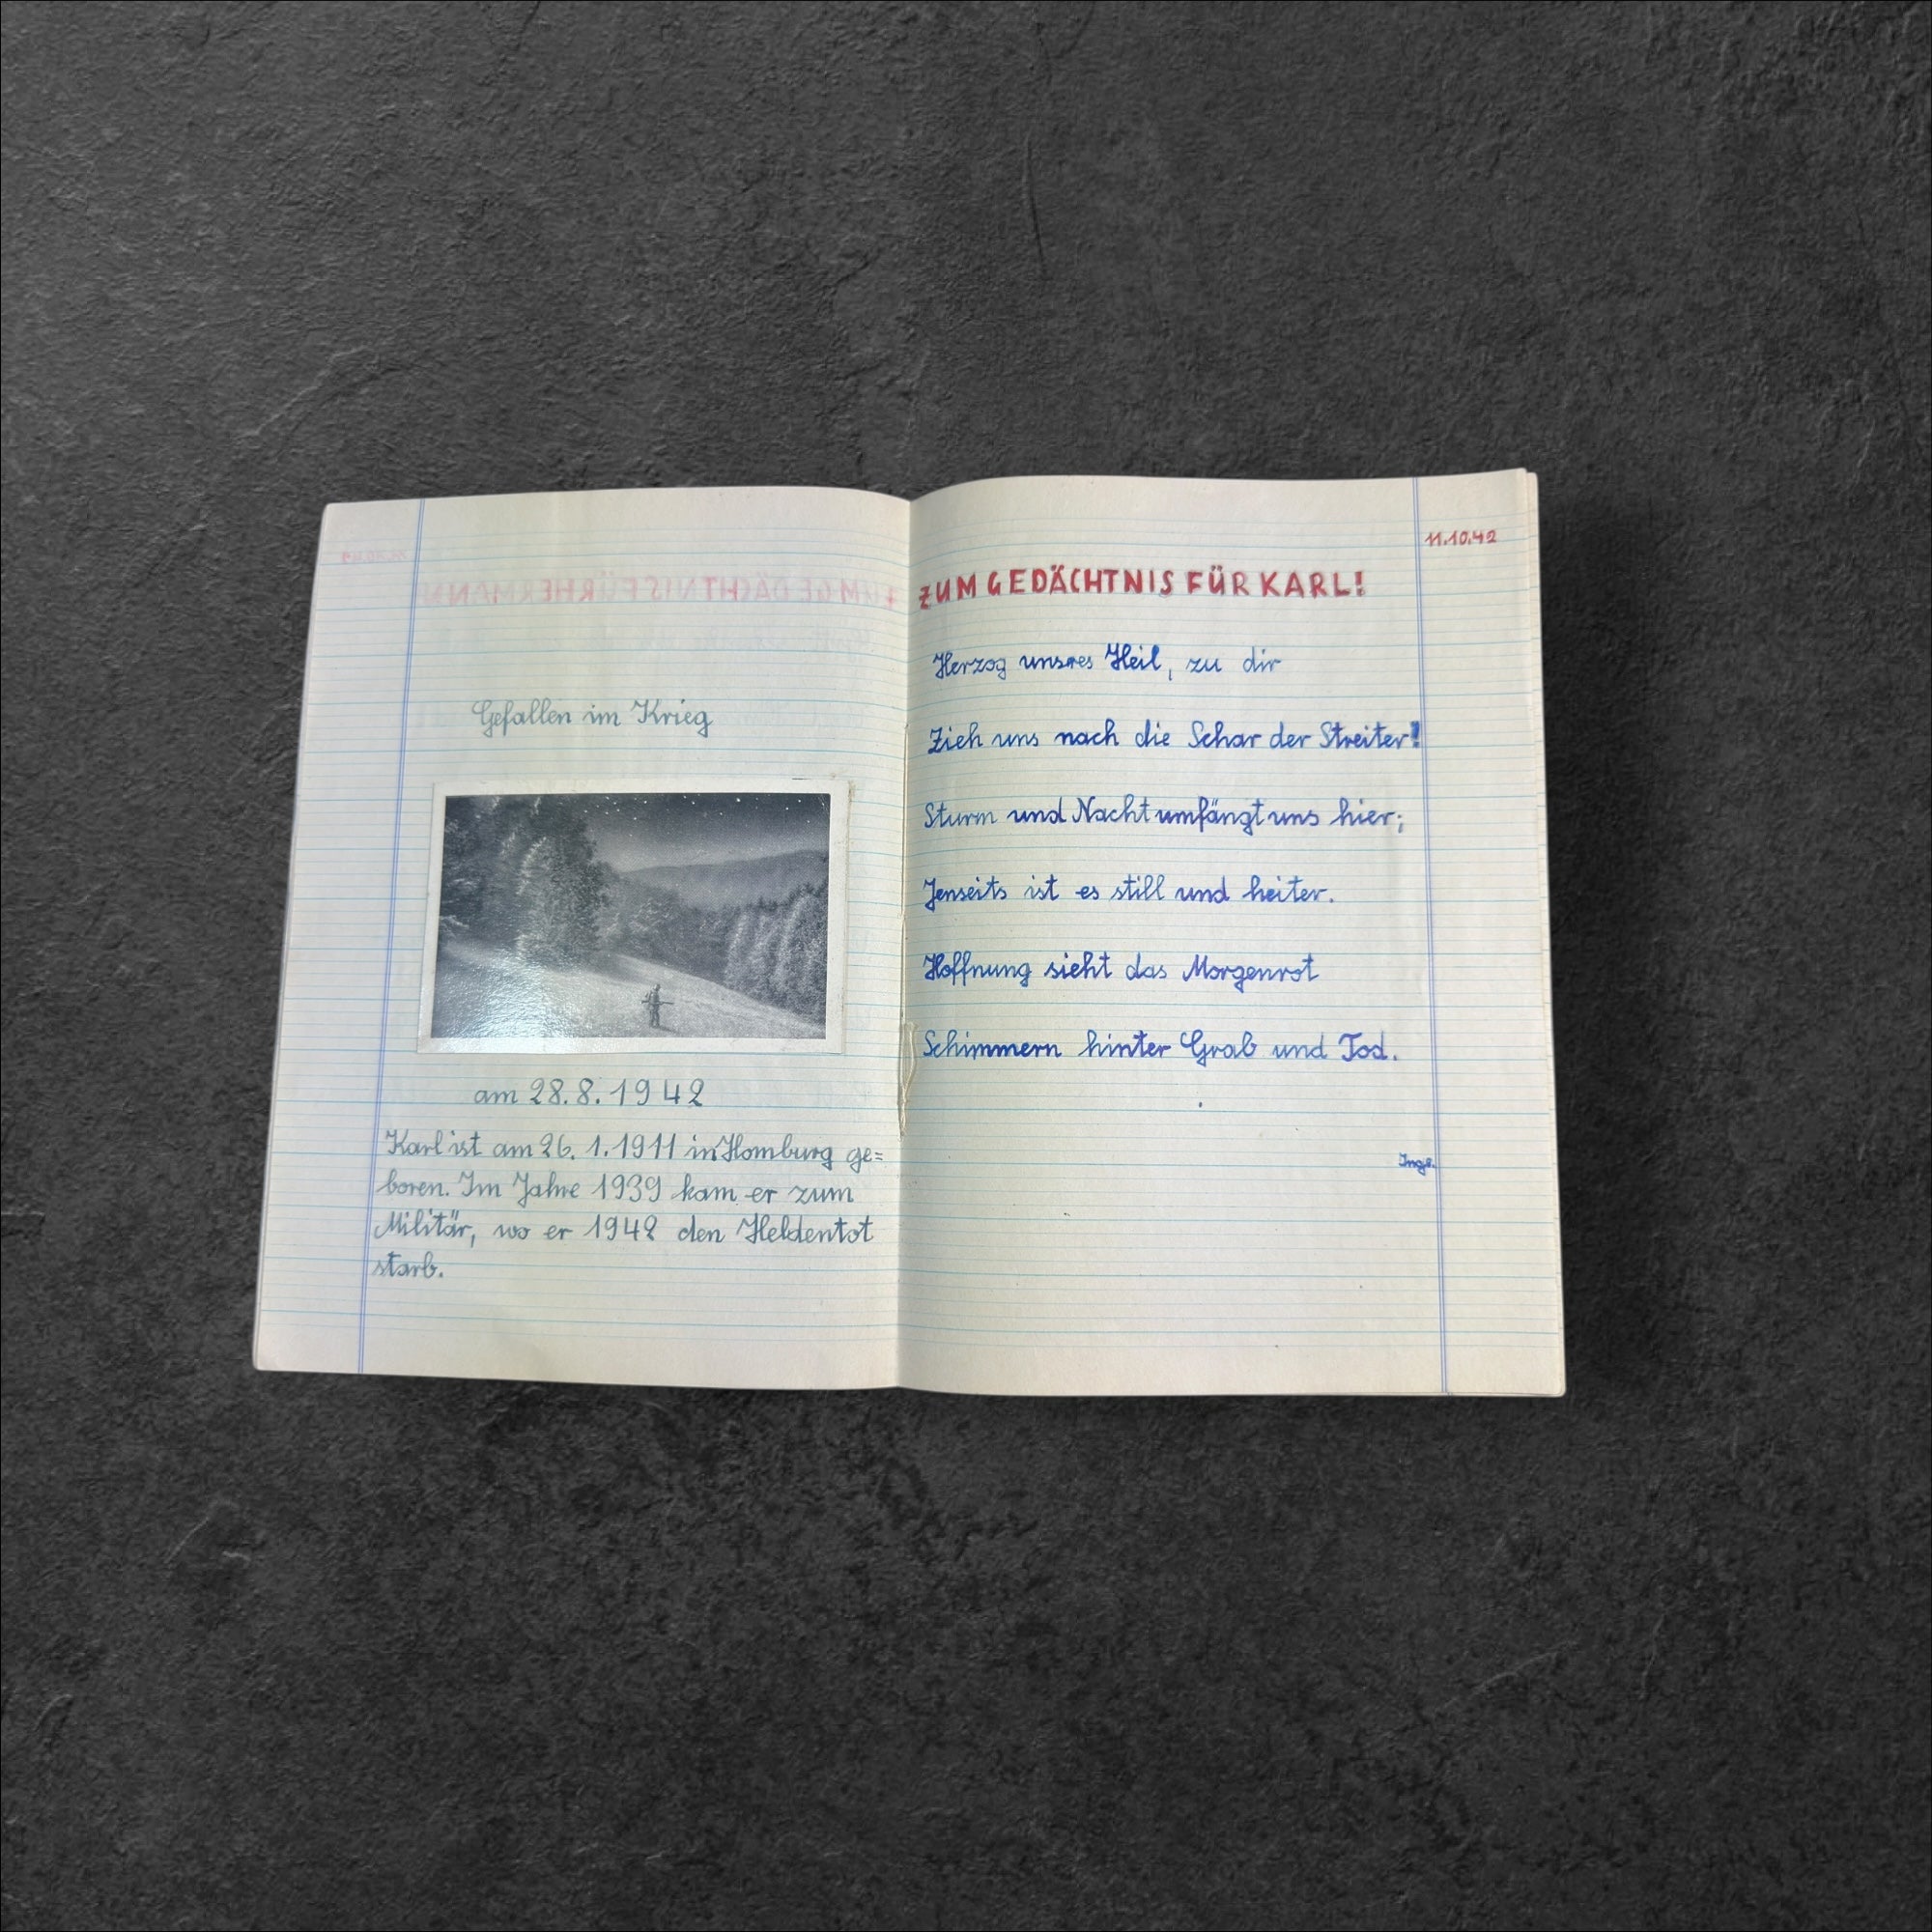 Gefallen im Krieg
am 28.8.1942
Karl ist am 26.1.1911 in Homburg ge=
boren. Im Jahre 1939 kam er zum
Militär, wo er 1942 den Heldentot
starb.
11.10.42
ZUM GEDÄCHTNIS FÜR KARL!
Herzog unsres Heil, zu dir
Zieh uns nach die Schar der Streiter!
Sturm und Nacht umfängt uns hier;
Jenseits ist es still und heiter.
Hoffnung sieht das Morgenrot
Schimmern hinter Grab und Tod.